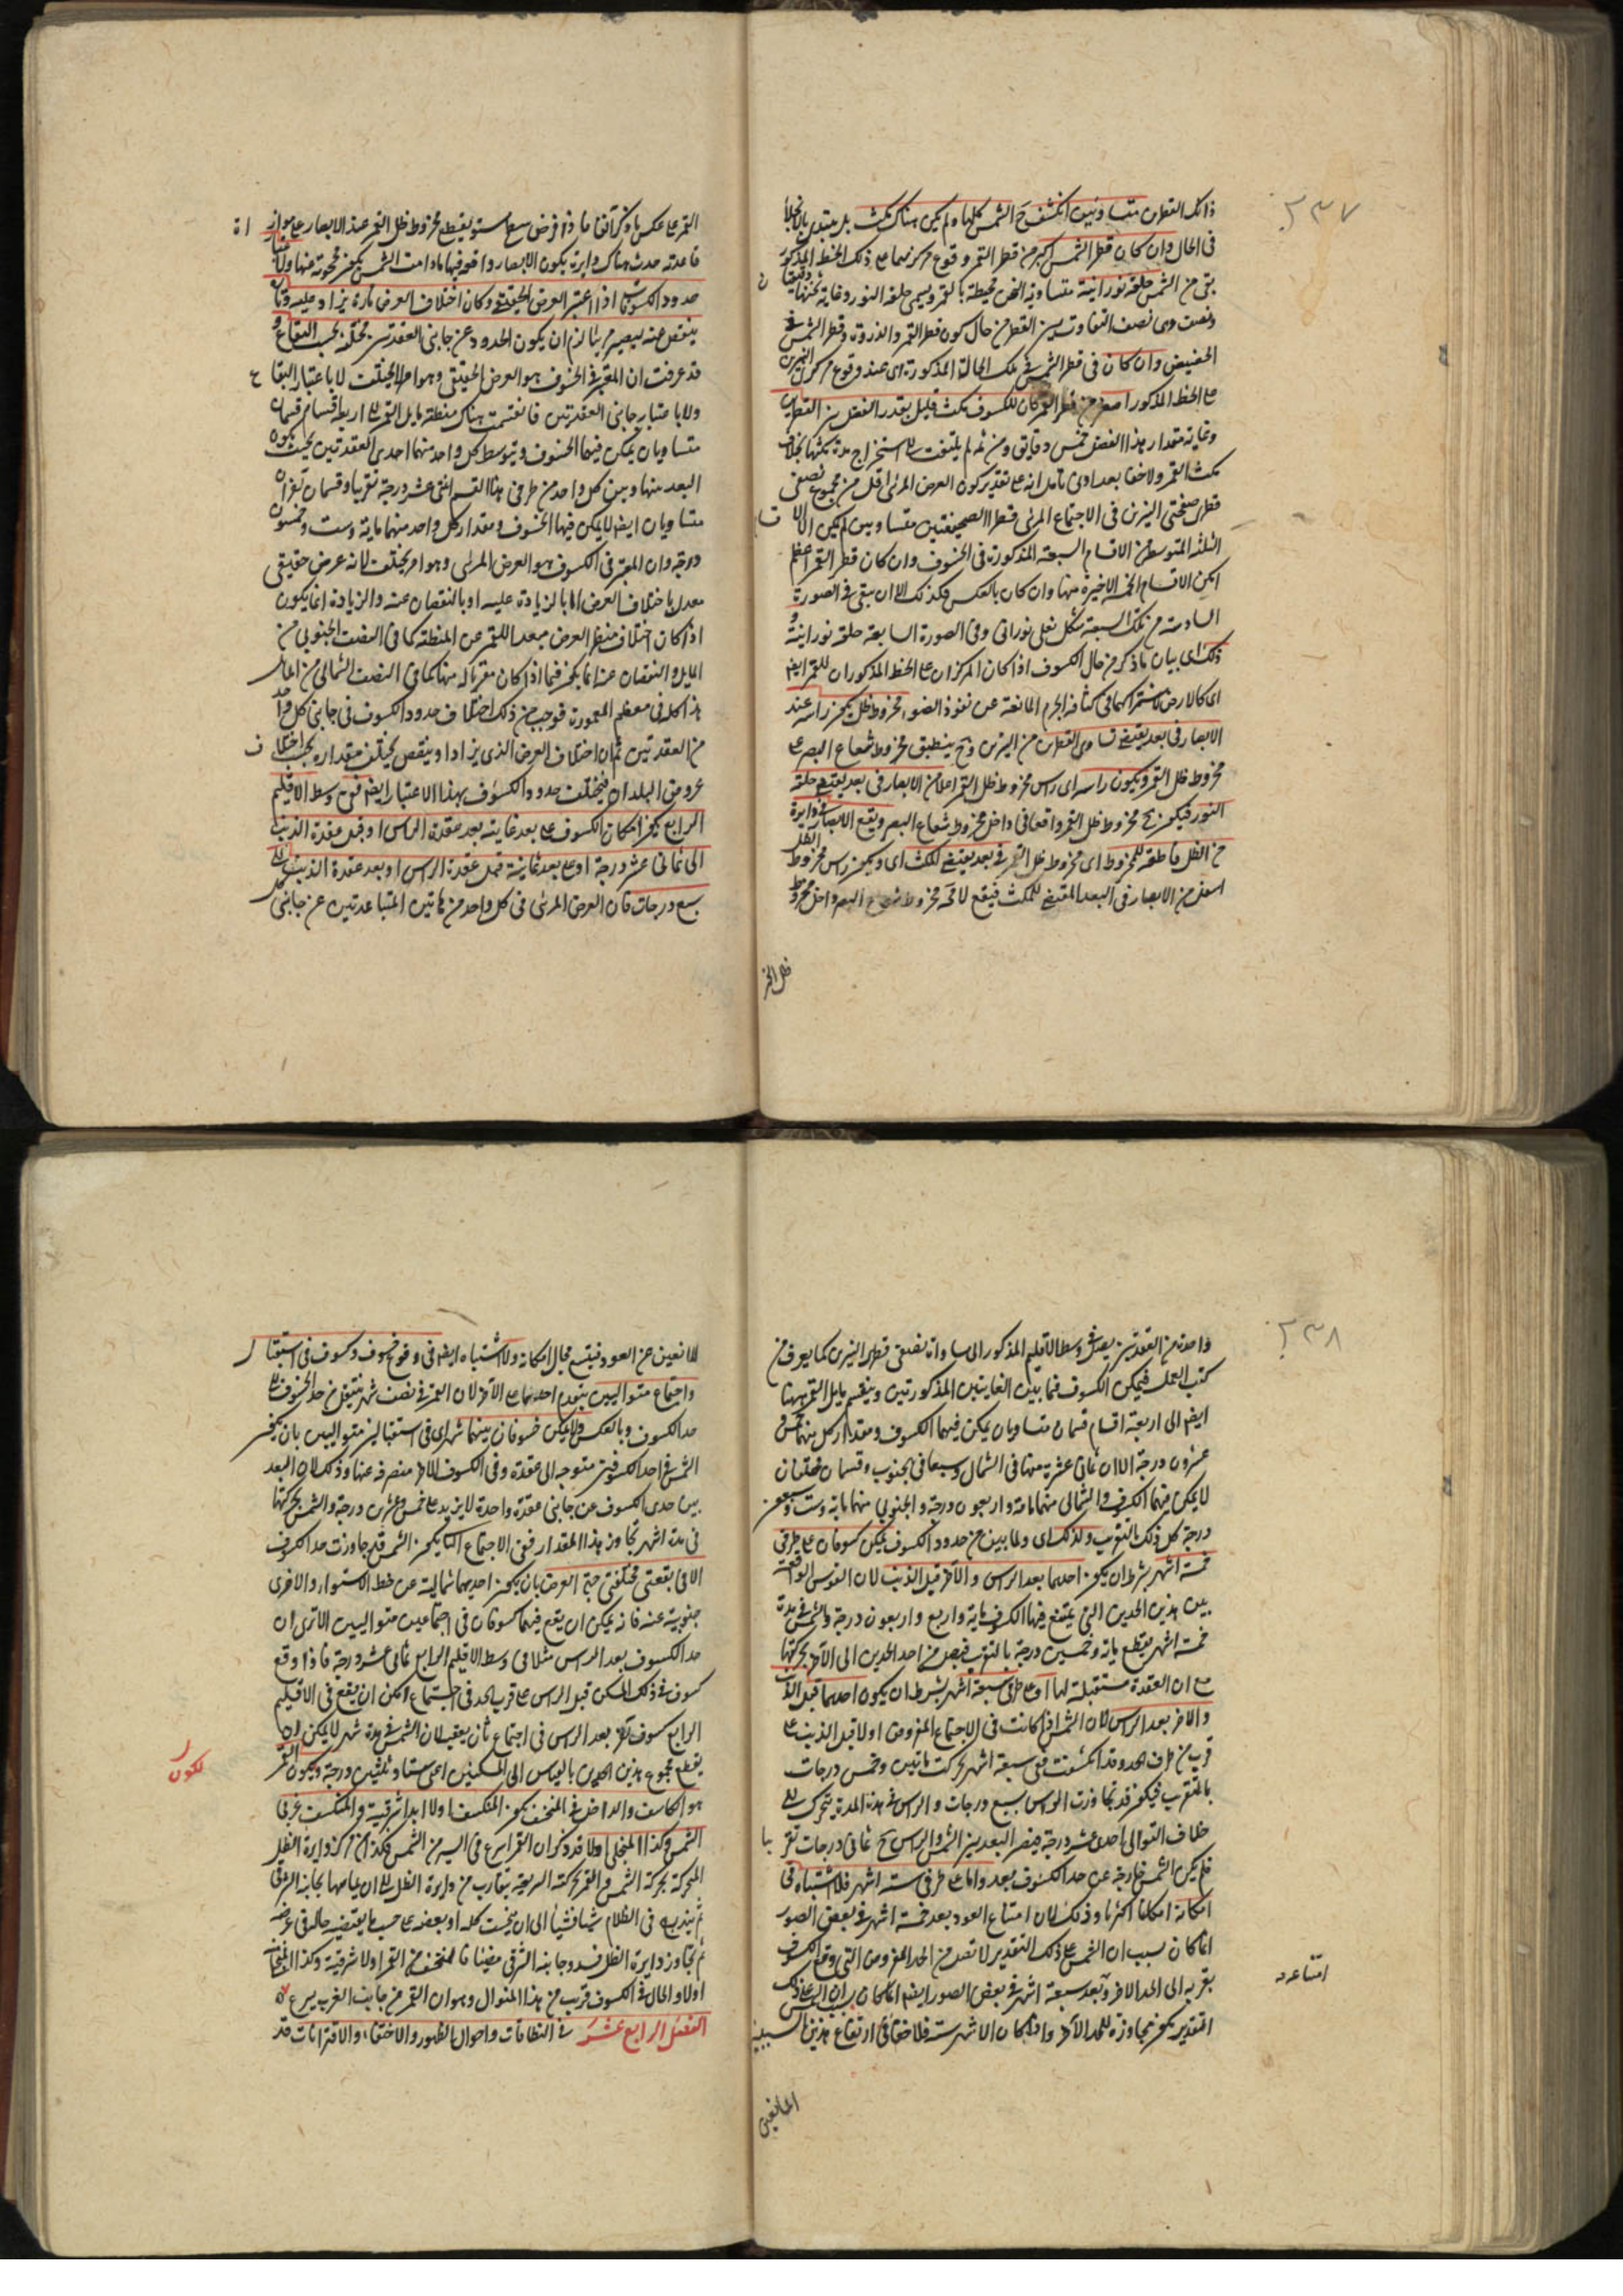 ٢٣٧
ذانك القطران متساويين انكشف ح الشمس كلها ولم يكن هناك مكث بل يبتدى بالانجلاء
فى الحال وان كان قطر الشمس اكبر من قطر القمر وقوع مركزيهما على ذلك الخط المذكور
بقى من الشمس حلقة نورانية متساوية الثخن محيطة بالقمر ويسمى حلقة النور وغاية ثخنها دقيقتان
ونصف وهى نصف التفاوت بين القطرين حال كون قطر القمر والذروة وقطر الشمس فى
الحضيض وان كان فى قطر الشمس فى تلك الحالة المذكورة اى عند وقوع مركزى النيرين
على الخط المذكور اصغر من قطر القمر كان للكسوف مكث قليل بقدر الفضل بين القطرين
وغاية مقدار هذا الفضل خمس دقايق ومن ثم لم يلتفت الى استخراج مدة مكثها بخلاف
مكث القمر ولا خفا بعد ادى تامل انه على تقدير كون العرض المرئى اقل من مجموع نصفى
قطرى صفحتى النيرين فى الاجتماع المرئى فقطرا الصحيفتين متساويين لم يكن الا
الثلثة المتوسطة من الاقسام السبعة المذكورة فى الخسوف وان كان قطر القمر اعظم
امكن الاقسام الخمسة الاخيرة منها وان كان بالعكس فكذلك الا ان يبقى فى الصورة
السادسة من تلك السبعة شكل نعلى نورانى وفى الصورة السابعة حلقة نورانية
ذلك اى بيان ما ذكر من حال الكسوف اذا كان المركزان على الخط المذكور ان للقمر ايضا
اى كالارض لاشتراكهما فى كثافة الجرم المانعة عن نفوذ الضوء مخروط ظل يكون راسه عند
الابصار فى بعد يقتضى تساوى القطرين من النيرين وح ينطبق مخروط شعاع البصر على
مخروط ظل القمر ويكون راسه اى راس مخروط ظل القمر اعلا من الابصار فى بعد يقتضى حلقة
النور فيكون ح مخروط ظل القمر واقعا فى داخل مخروط شعاع البصر ويقع الابصار فى دايرة
من الظل قاطعة للمخروط اى مخروط ظل القمر فى بعد يقتضى المكث اى ويكون راس مخروط الظل
اسفل من الابصار فى البعد المقتضى للمكث فيقع لا محة مخروط شعاع البصر داخل مخروط
ظل القمر
القمر على عكس ما ذكر آنفا فاذا فرض سطح مستو يقطع مخروط ظل القمر عند الابصار على موازاة
قاعدته حدث هناك دايرة يكون الابصار واقعة فيها مادامت الشمس يكون محجوبة عنها ولا
حدود الكسوف اذا اعتبر العرض الحقيقى وكان اختلاف العرض تارة يزاد عليه وتارة
ينقص عنه ليصير مرئيا لزم ان يكون الحدود عن جانبى العقدتين مختلفة بحسب البقاع و
قد عرفت ان المعتبر فى الخسوف هو العرض الحقيقى وهو امر لا يختلف لا باعتبار البقاع
ولا باعتبار جانبى العقدتين فانقسمت هناك منطقة مايل القمر الى اربعة اقسام قسمان
متساويان يمكن فيهما الخسوف ويتوسط كل واحد منهما احدى العقدتين بحيث يكون
البعد منها وبين كل واحد من طرفى هذا القسم اثنى عشر درجة تقريبا وقسمان آخران
متساويان ايضا لا يمكن فيها الخسوف ومقدار كل واحد منهما ماية وست وخمسون
درجة وان المعتبر فى الكسوف هو العرض المرئى وهو امر يختلف لانه عرض حقيقى
معدل باختلاف العرض اما بالزيادة عليه او بالنقصان عنه والزيادة انما يكون
اذا كان اختلاف منظر العرض مبعدا للقمر عن المنطقة كما فى النصف الجنوبى من
المايل والنقصان عنه انما يكون فيما اذا كان مقربا له منها كما فى النصف الشمالى من المايل
هذا كله فى معظم المعمورة فوجب من ذلك اختلاف حدود الكسوف فى جانبى كل واحد
من العقدتين ثم ان اختلاف العرض الذى يزاد او ينقص يختلف مقداره بحسب اختلاف
عروض البلدان فيختلف حدود الكسوف بهذا الاعتبار ايضا ففى وسط الاقليم
الرابع يكون امكان الكسوف على بعد غايته بعد عقدة الراس او قبل عقدة الذنب
الى ثمانى عشر درجة او على بعد غايته قبل عقدة الراس او بعد عقدة الذنب الى
سبع درجات فان العرض المرئى فى كل واحد من هاتين المتباعدتين عن جانبى
٢٣٨
واحدة من العقدتين يعتبر فى وسط الاقليم المذكور المساواة نصفى قطرى النيرين كما يعرف من
كتب العمل فيمكن الكسوف فيما بين الغايتين المذكورتين وينقسم مايل القمر ههنا
ايضا الى اربعة اقسام قسمان متساويان يمكن فيهما الكسوف ومقدار كل منهما خمس و
عشرون درجة الا ان ثمانى عشرة منها فى الشمال وسبعا فى الجنوب وقسمان مختلفان
لا يمكن فيهما الكسوف والشمالى منهما ماية واربعون درجة والجنوبى منهما ماية وست وستون
درجة كل ذلك بالتقريب ولذلك اى ولما بين من حدود الكسوف يمكن كسوفان على طرفى
خمسة اشهر بشرط ان يكون احدهما بعد الراس والآخر قبل الذنب لان القوس الواقعة
بين هذين الحدين التى يمتنع فيها الكسوف ماية واربع واربعون درجة والشمس فى مدة
خمسة اشهر يقطع ماية وخمسين درجة بالتقريب فيصل من احد الحدين الى الآخر بحركتها
مع ان العقدة مستقبلة لها او على طرفى سبعة اشهر بشرط ان يكون احدهما قبل الذنب
والآخر بعد الراس لان الشمس اذا كانت فى الاجتماع المفروض اولا قبل الذنب على
قريب من طرف الحد وقد انكسفت ففى سبعة اشهر تحركت مأتين وخمس درجات
بالتقريب فيكون قد تجاوزت الراس بسبع درجات والراس فى هذه المدة يتحرك الى
خلاف التوالى احدى عشر درجة فيصير البعد بين الشمس والراس ح ثمانى درجات تقريبا
فلم يكن الشمس خارجة عن حد الكسوف بعد واما على طرفى ستة اشهر فلا اشتباه فى
امكانه امكانا اكثريا وذلك لان امتناع العود بعد خمسة اشهر فى بعض الصور
انما كان بسبب ان الشمس على ذلك التقدير لا تصل من الحد المفروض التى وقع الكسوف
بقربه الى الحد الاخر وبعد سبعة اشهر فى بعض الصور ايضا انما كان بسبب ان الشمس على ذلك
التقدير يكون مجاوزة للحد الآخر واذا كان الاشهر ستة فلا خفا فى ارتفاع هذين السببين
امتناعه
المانعين
المانعين عن العود فيتسع مجال امكانه ولا اشتباه ايضا فى وقوع خسوف وكسوف فى استقبال
واجتماع متواليين يتقدم احدهما على الآخر لان القمر فى نصف شهر ينتقل من حد الخسوف الى
حد الكسوف وبالعكس ولا يمكن خسوفان بينهما شهر اى فى استقبالين متواليين بان يكون
الشمس فى احد الكسوفين متوجهة الى عقدة وفى الكسوف الآخر منصرفة عنها وذلك لان البعد
بين حدى الكسوف عن جانبى عقدة واحدة لا يزيد على خمس وعشرين درجة والشمس بحركتها
فى مدة اشهر تجاوز هذا المقدار ففى الاجتماع الثانى يكون الشمس قد جاوزت حد الكسوف
الا فى بقعتى مختلفتى جهة العرض بان يكون احديهما شمالية عن خط الاستواء والاخرى
جنوبية عنه فانه يمكن ان يقع فيهما كسوفان فى اجتماعين متواليين الا ترى ان
حد الكسوف بعد الراس مثلا فى وسط الاقليم الرابع ثمانى عشر درجة فاذا وقع
كسوف فى ذلك المسكن قبل الراس على قرب الحد فى اجتماع امكن ان يقع فى الاقليم
الرابع كسوف آخر بعد الراس فى اجتماع ثان يعقبه لان الشمس فى مدة شهر لا يمكن ان
يقطع مجموع هذين الحدين بالقياس الى المسكنين اعنى ستا وثلثين درجة ويكون القمر
لكون
هو الكاسف والداخل فى المنخسف يكون المنكسف اولا ابدا شرقية والمنكسف غربى
الشمس وكذا المنجلى اولا قد ذكر ان القمر اسرع فى السير من الشمس فكذا من مركز دايرة الظل
المتحركة بحركة الشمس والقمر بحركته السريعة يتقارب من دايرة الظل الى ان يماسها بجانبه الشرقى
ثم يندرج فى الظلام شيئا فشيئا الى ان ينخسف كله او بعضه على حسب ما يقتضيه حاله فى عرضه
ثم يجاوز دايرة الظل فيبدو جانبه الشرقى مضيئا فالمنخسف من القمر اولا شرقية وكذا المنجلى
اولا والحال فى الكسوف قريب من هذا المنوال وهو ان القمر من جانب الغرب يسرع
الفصل الرابع عشر فى النطاقات واحوال الظهور والاختفاء والاقترانات قد